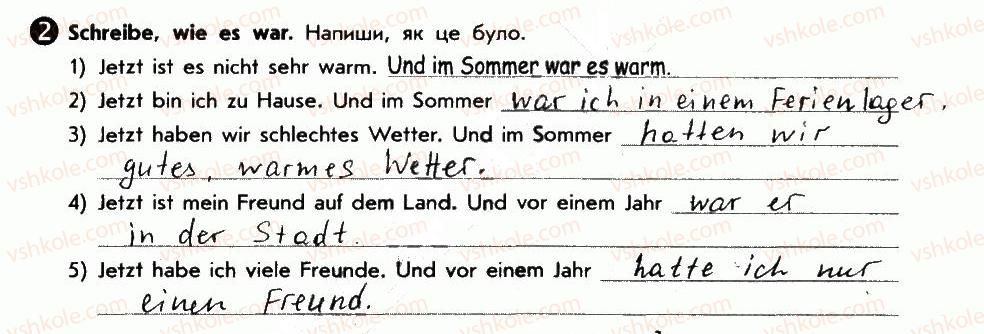 2 Schreibe, wie es war. Напиши, як це було.
1) Jetzt ist es nicht sehr warm. Und im Sommer war es warm.
2) Jetzt bin ich zu Hause. Und im Sommer war ich in einem Ferienlager.
3) Jetzt haben wir schlechtes Wetter. Und im Sommer hatten wir
gutes, warmes Wetter.
4) Jetzt ist mein Freund auf dem Land. Und vor einem Jahr war er
in der Stadt.
5) Jetzt habe ich viele Freunde. Und vor einem Jahr hatte ich nur
einen Freund.